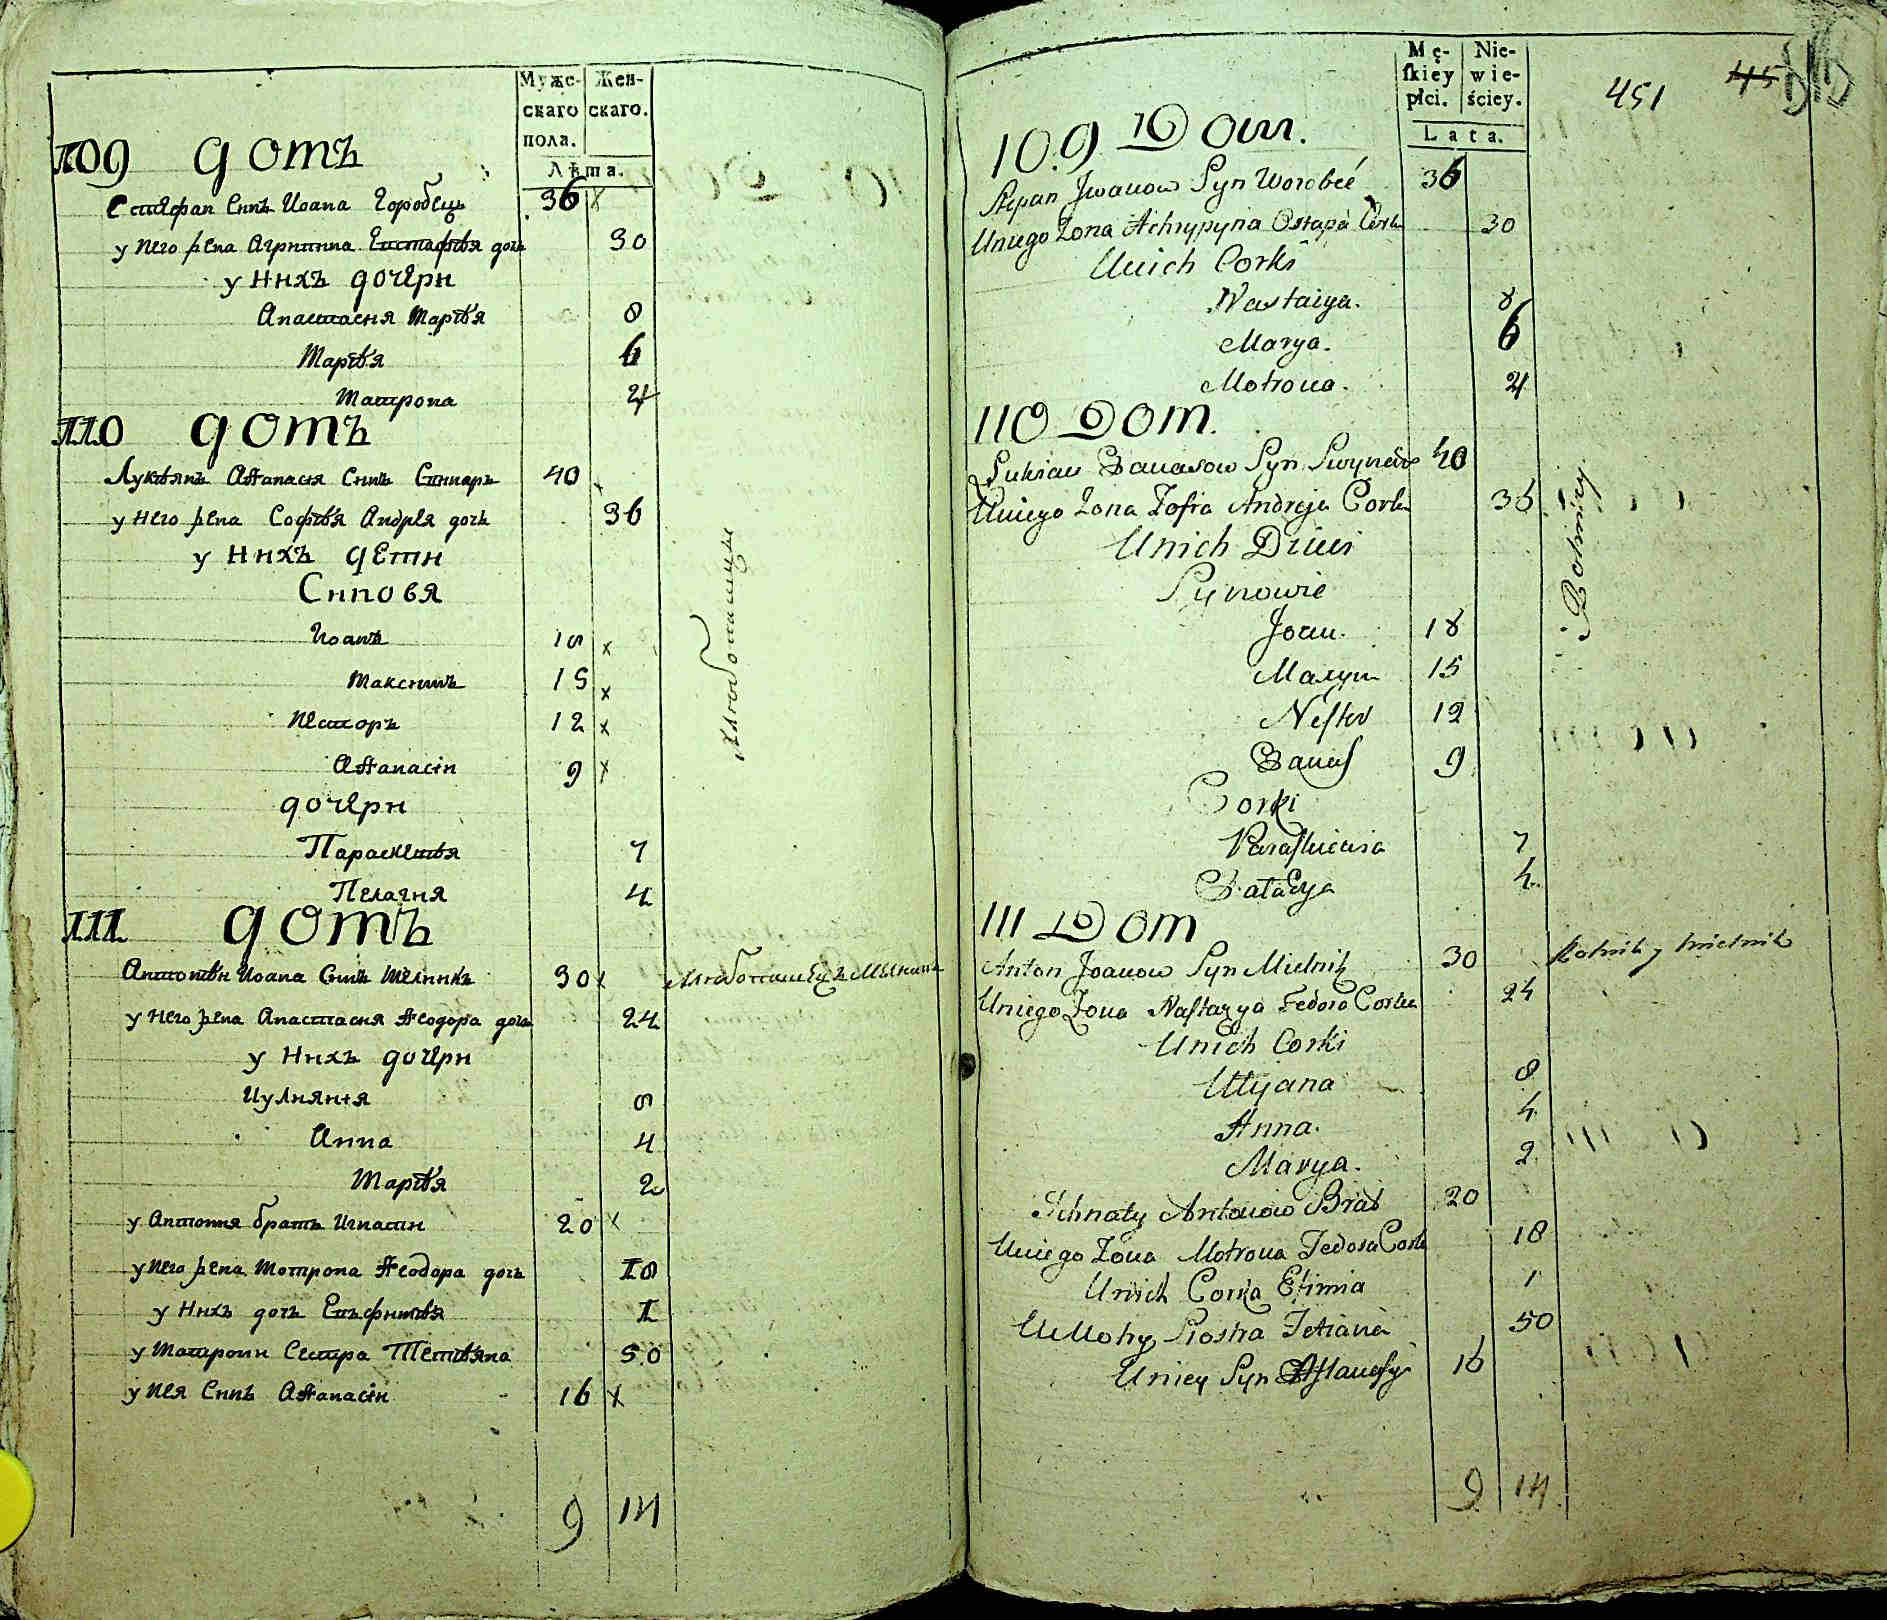 Муже-
скаго
пола.
Жен-
скаго.
Лѣта.
109 домъ
Стефан Снъ Иоана Горобецъ 36
у него жена Агрипина Евстафия дочь 30
у них дочери
Анастасия 8
Мария 6
Матрона 4
110 домъ
Лукиянъ Афанасия Снъ Свинаръ 40
у него жена София Андрея дочь 36
у них дети
Синовя
Иоанъ 18
Максимъ 15
Несторъ 12
Афанасіи 9
дочери
Параскевия 7
Пелагия 4
Хлебопашцы
111 домъ
Антоній Иоана Снъ Мелникъ 30 Хлебопашецъ Мелникъ
у него жена Анастасия Феодора дочь 24
у них дочери
Иулиянія 8
Анна 4
Мария 2
у Антония братъ Игнатіи 20
у него жена Мотрона Феодора дочь 18
у них дочь Евфимия 1
у Матрони Сестра Тетияна 50
у нея Снъ Афанасіи 16
9 14
Mę-
skiey
płci.
Nie-
wie-
ściey.
Lata.
451
45
109 Dom.
Stepan Jwanow Syn Worobeć 36
Uniego Zona Achrypyna Ostapa Corka 30
Unich Corki
Nastazya. 8
Marya. 6
Motrona. 4
110 Dom.
Lukian Banasow Syn 40
Uniego Zona Zofia Andreja Corka 36
Unich Dzieci
Synowie
Joan. 18
Maxym 15
Nestor 12
Banas 9
Corki
Paraskiewia 7
4
Rolnicy
111 Dom
Anton Joanow Syn Mielnik 30 Rolnik y Mielnik
Uniego Zona Nastazya Fedora Corka 24
Unich Corki
Ulyana 8
Anna. 4
Marya. 2
Ichnaty Antonow Brat 20
Uniego Zona Motrona Fedora Corka 18
Unich Corka Efimia 1
U Motry Siostra Tetiana 50
Uniey Syn Afanasy 16
9 14